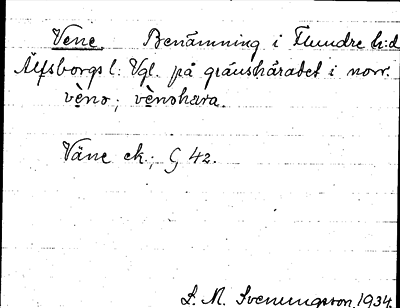 Vene. Benämning i Flundre h:d
Älfsborgs l: Vgl. på gränshäradet i norr.
vèno; vènohara.
Väne ek.; G 42.
S. M. Svenungsson 1934.